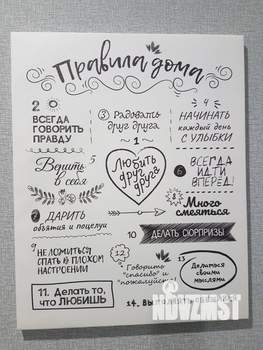 Правила дома
2
ВСЕГДА
ГОВОРИТЬ
ПРАВДУ
3 Радовать
друг друга
4
НАЧИНАТЬ
каждый день
С УЛЫБКИ
1
Любить
друг
друга
Верить 5
в себя
6 ВСЕГДА
ИДТИ
ВПЕРЕД!
7 ДАРИТЬ
объятия и поцелуи
8 Много
смеяться
10 ДЕЛАТЬ СЮРПРИЗЫ
9 НЕ ЛОЖИТЬСЯ
СПАТЬ В ПЛОХОМ
НАСТРОЕНИИ
12
Говорить
"спасибо" и
"пожалуйста"
13
Делиться
своими
мыслями
11. Делать то,
что ЛЮБИШЬ
14.